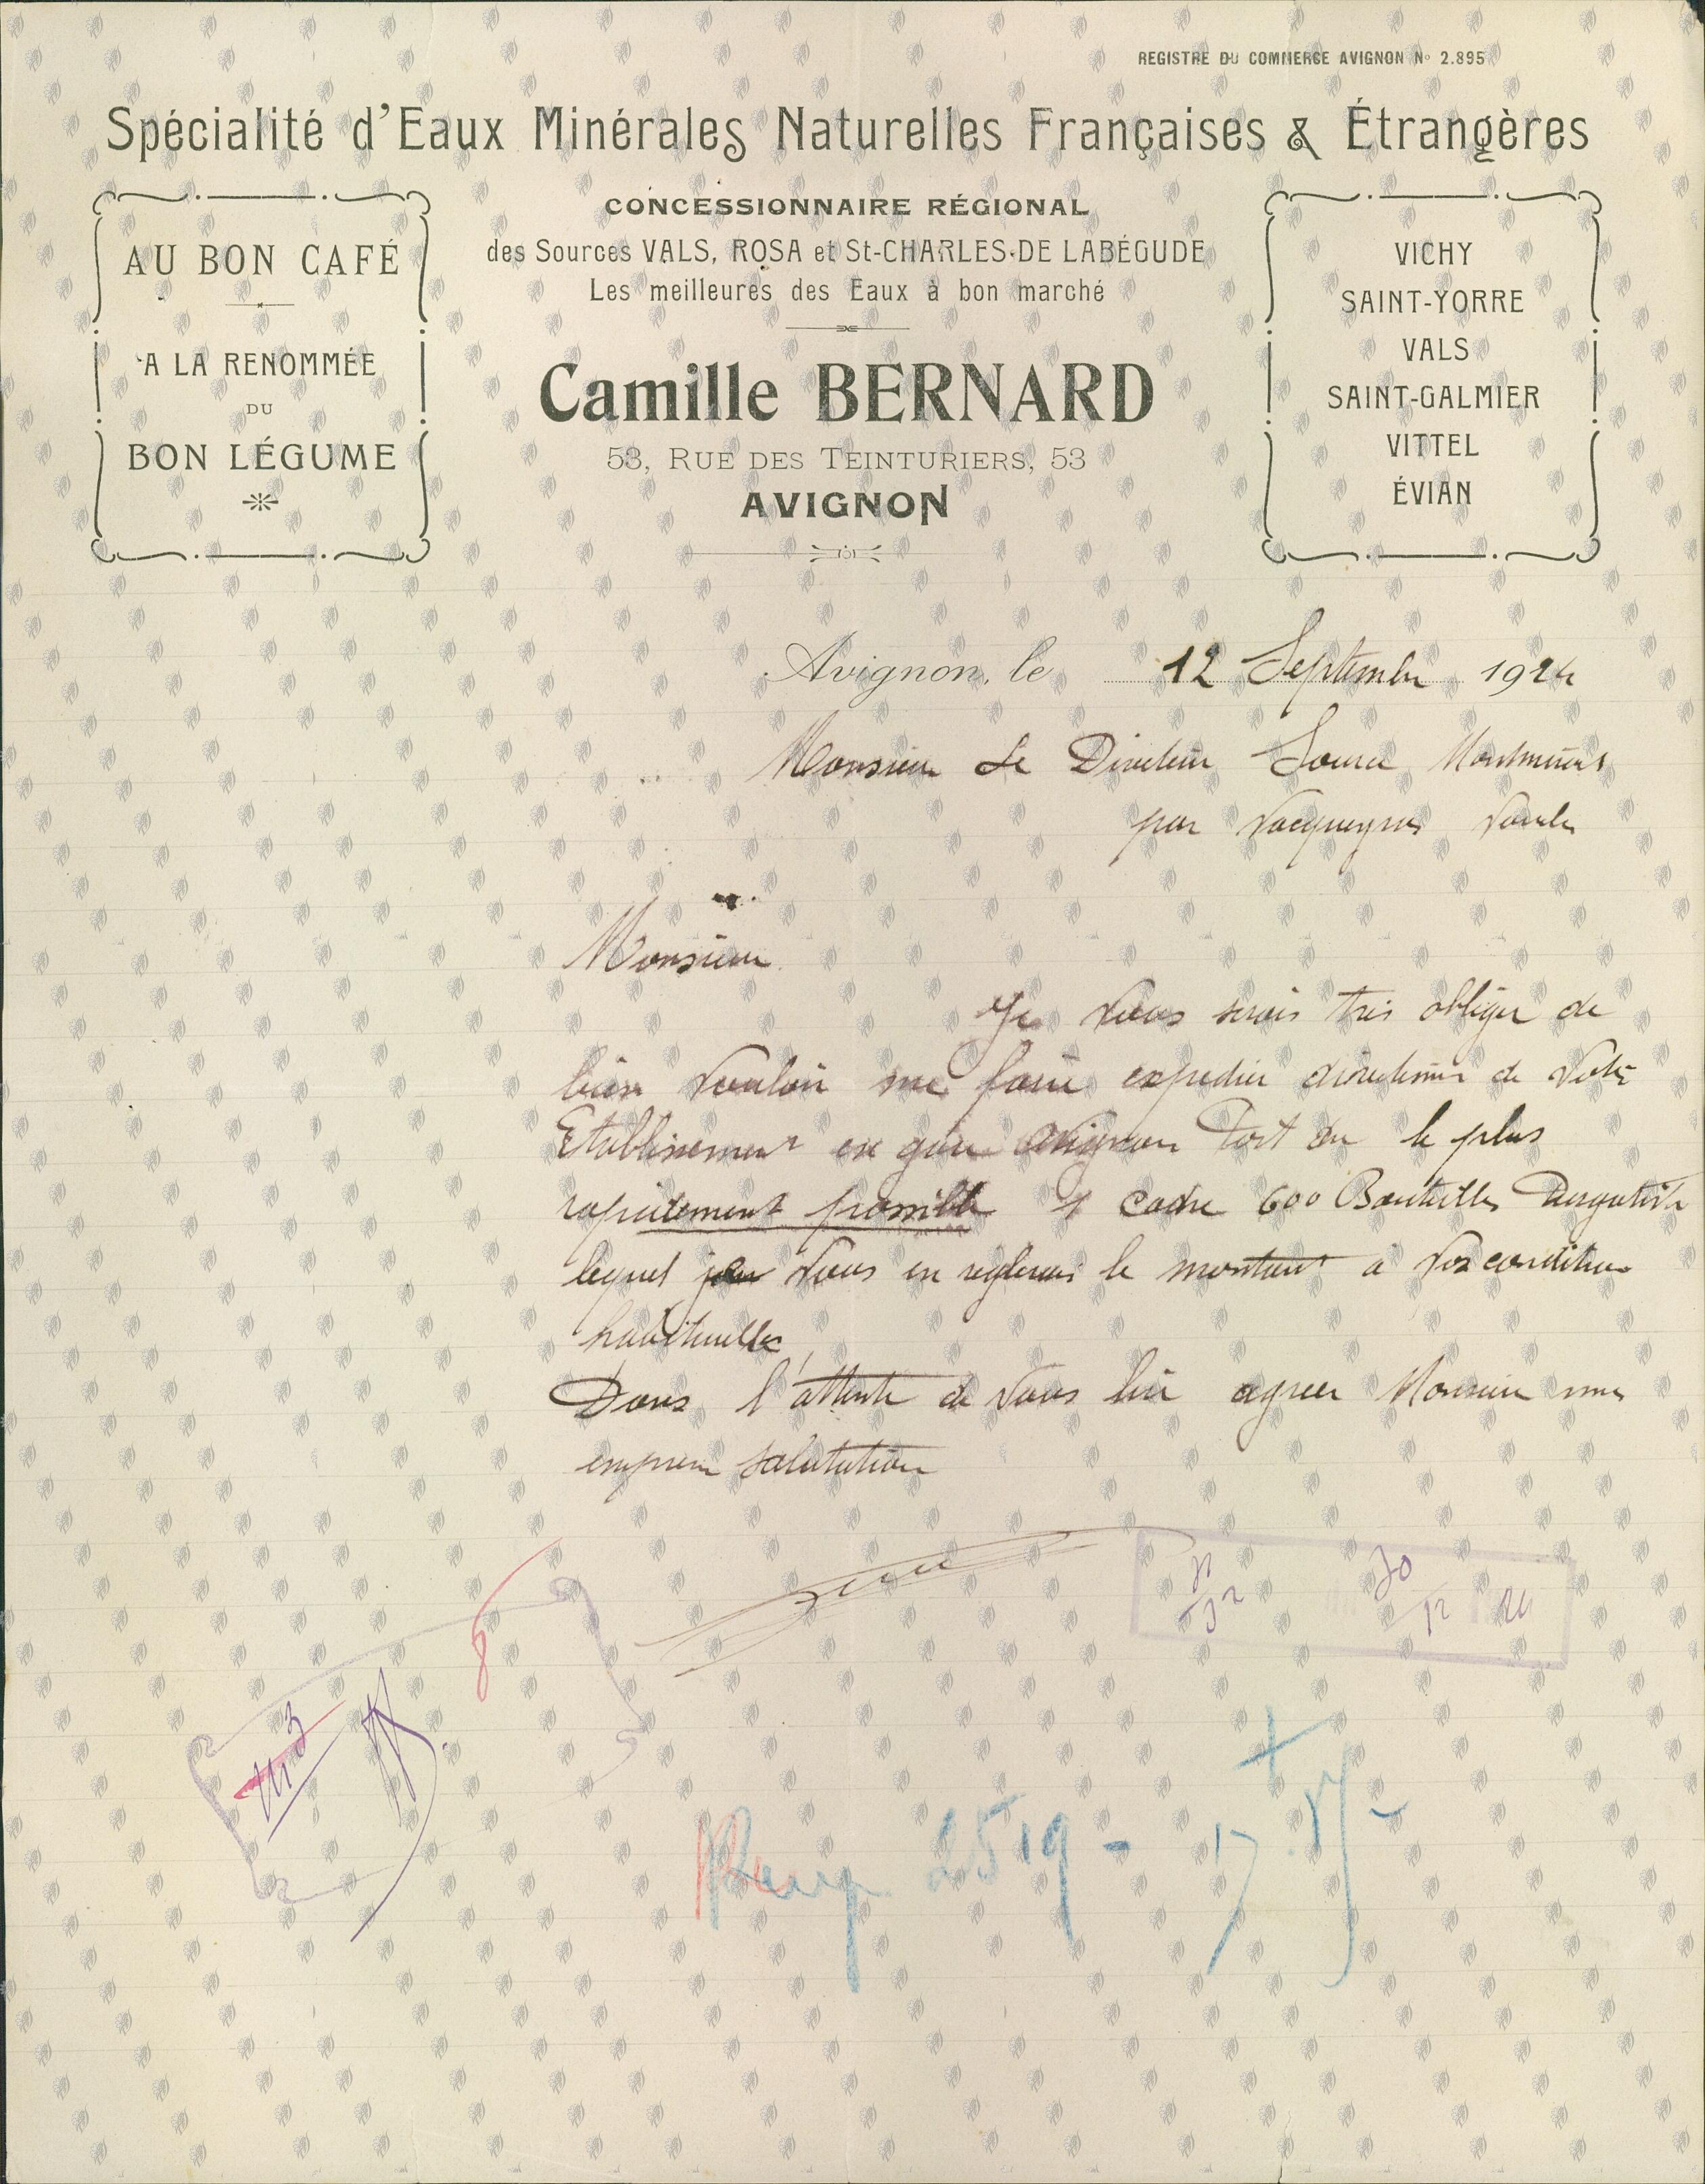 REGISTRE DU COMMERCE AVIGNON No 2.895
Spécialité d'Eaux Minérales Naturelles Françaises & Étrangères
AU BON CAFÉ
A LA RENOMMÉE
DU
BON LÉGUME
CONCESSIONNAIRE RÉGIONAL
des Sources VALS, ROSA et St-CHARLES-DE LABÉGUDE
Les meilleures des Eaux à bon marché
Camille BERNARD
53, RUE DES TEINTURIERS, 53
AVIGNON
VICHY
SAINT-YORRE
VALS
SAINT-GALMIER
VITTEL
ÉVIAN
Avignon, le 12 Septembre 1924
Monsieur Le Directeur Source Montmirail
par Vacqueyras Vaucluse
Monsieur
Je vous serais très obliger de
bien vouloir me faire expedier directement de votre
Etablissement en gare Avignon Tort ou le plus
rapidement possible 1 cadre 600 Bouteilles Purgative
lequel je vous en reglerais le montant à vos conditions
habituelles
Dans l'attente de vous lire agreer Monsieur mes
empressées salutations
Rung 2519 - 17